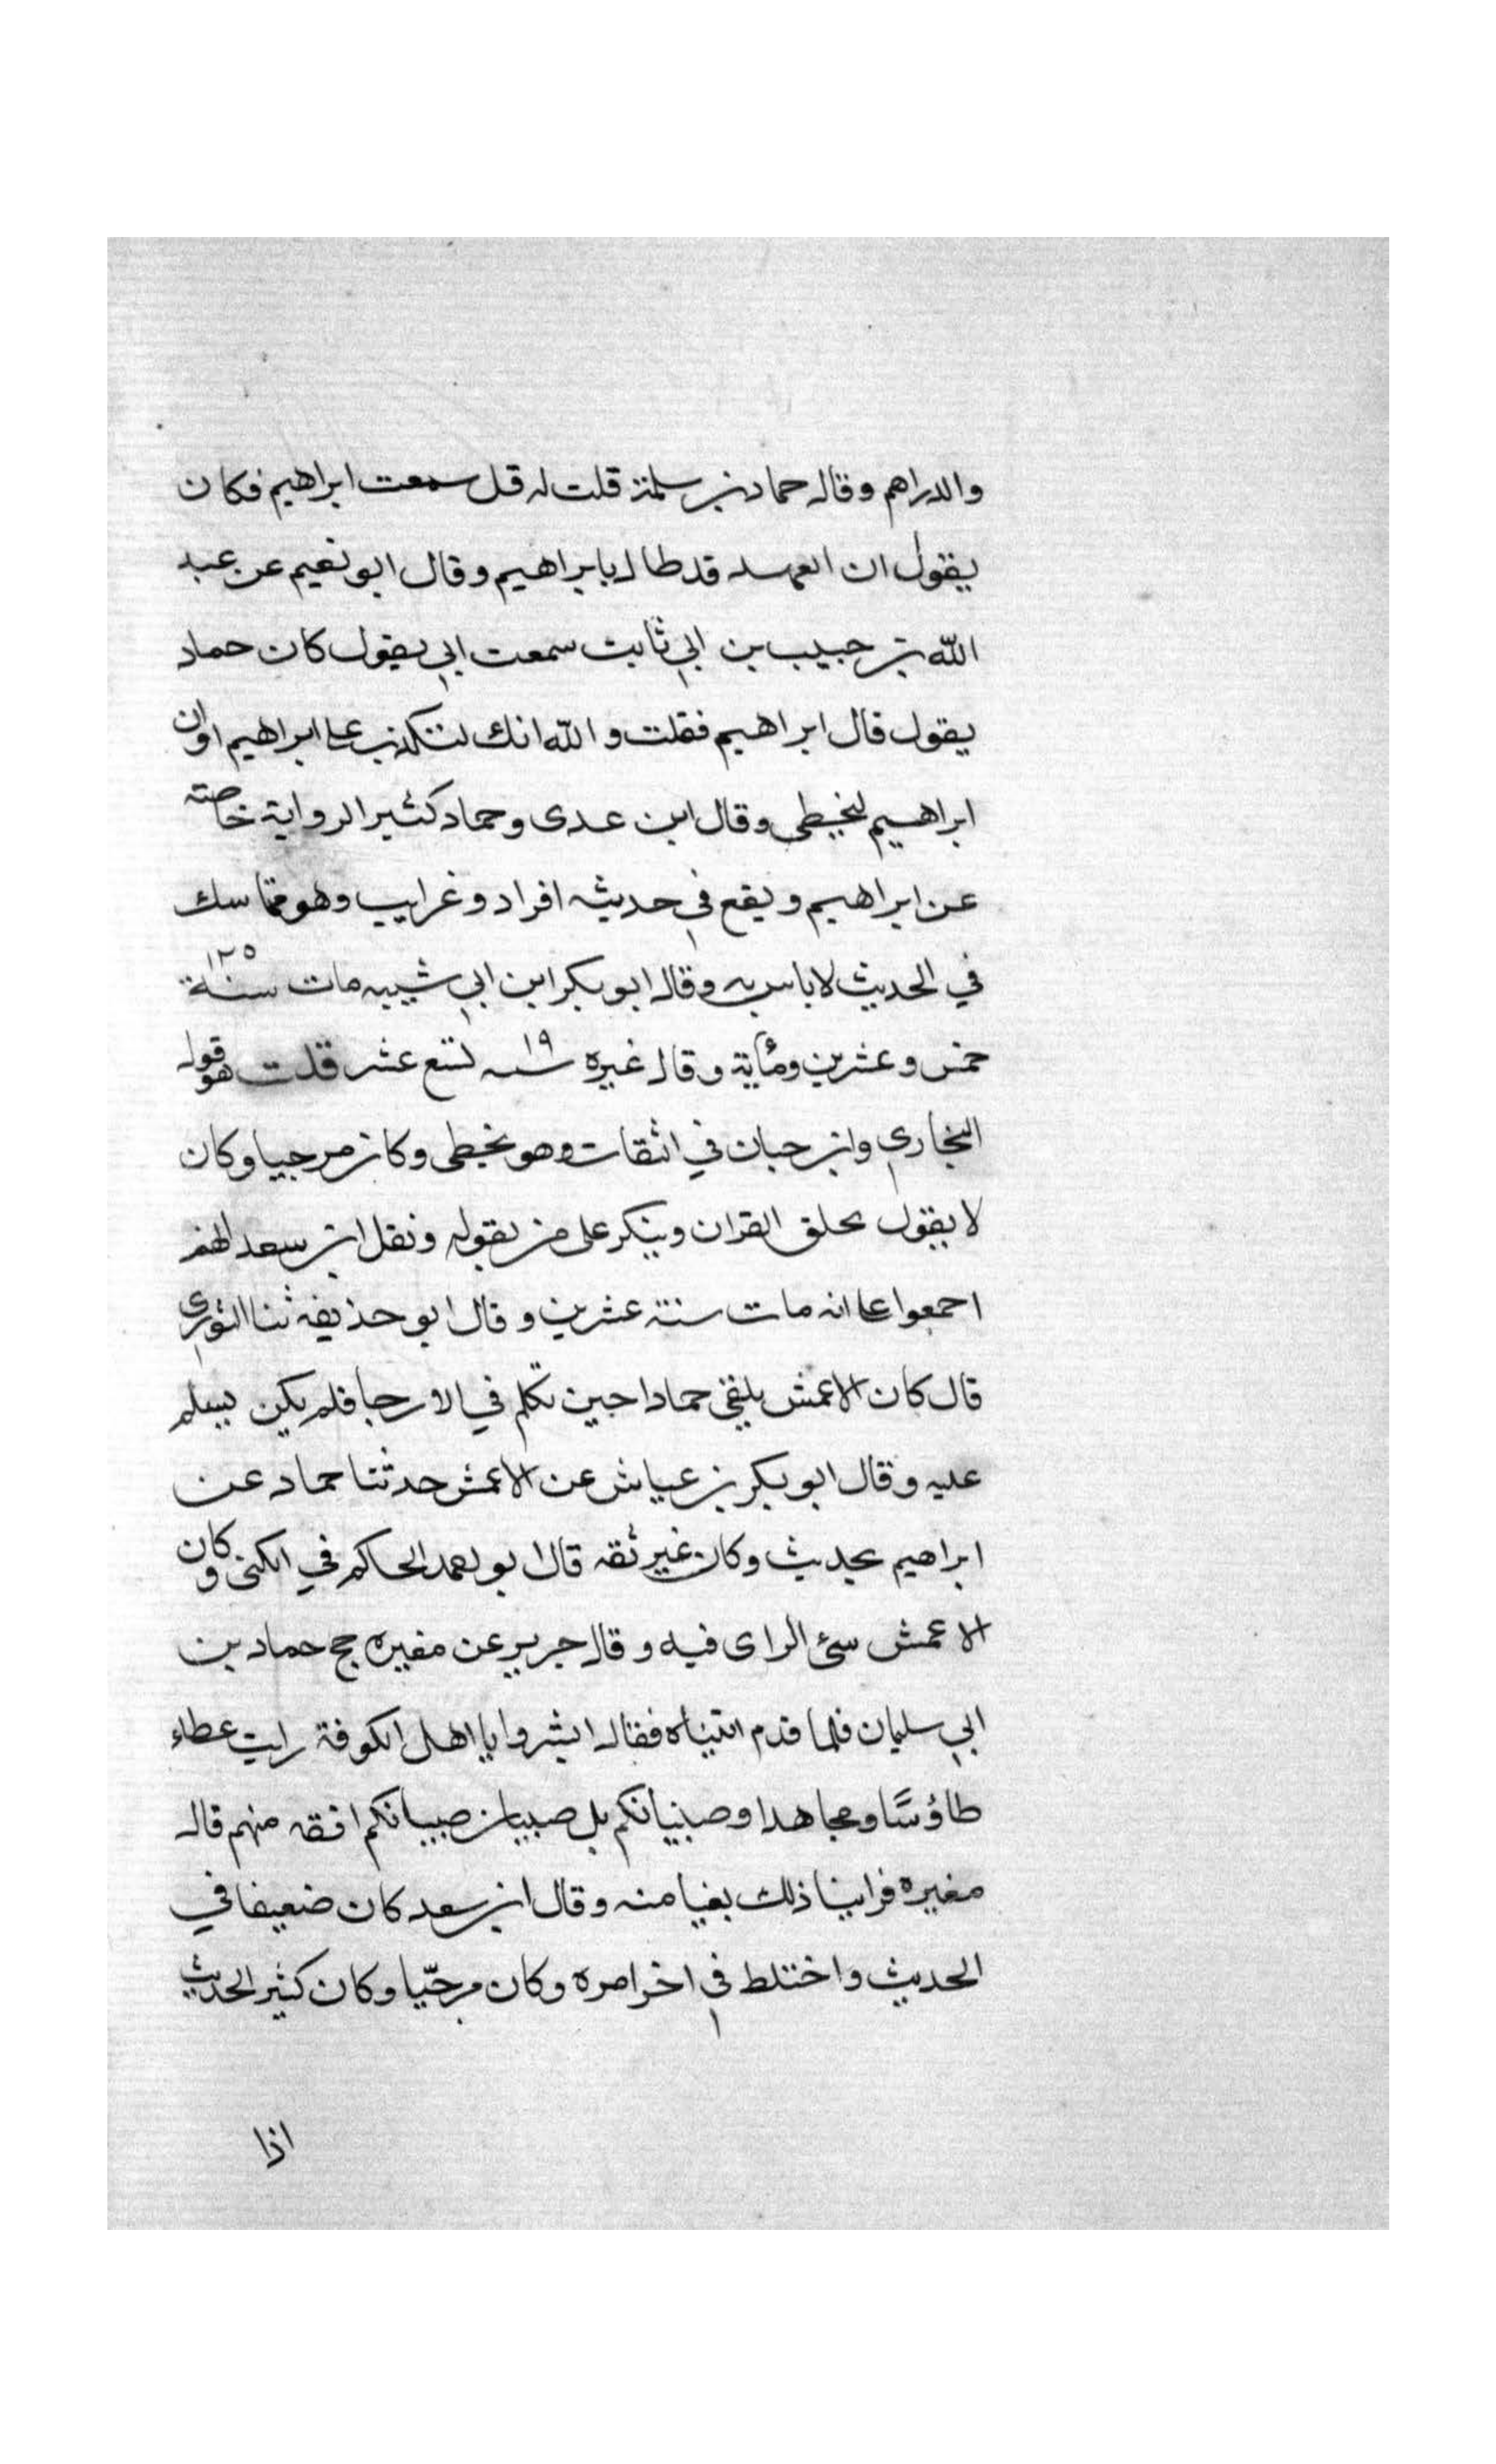 والدراهم وقال حماد بن سلمة قلت له قل سمعت ابراهيم فكان
يقول ان العهد قد طال بابراهيم وقال ابو نعيم عن عبد
الله بن حبيب بن ابي ثابت سمعت ابي يقول كان حماد
يقول قال ابراهيم فقلت والله انك لتكذب على ابراهيم او ان
ابراهيم ليخطي وقال ابن عدى وحماد كثير الرواية خاصته
عن ابراهيم ويقع في حديثه افراد وغرايب وهو متماسك
في الحديث لا باس به وقال ابو بكر ابن ابي شيبه مات سنة ١٢٥
خمس وعشرين ومأية وقال غيره سنه ١٩ تسع عشر قلت هو قول
البخاري وابن حبان في الثقات وهو يخطى وكان مرجيا وكان
لا يقول بخلق القران وينكر على من يقوله ونقل ابن سعد انهم
اجمعوا على انه مات سنة عشرين وقال ابو حذيفه ثنا الثوري
قال كان الاعمش يلقى حمادا حين تكلم في الارجا فلم يكن يسلم
عليه وقال ابو بكر بن عياش عن الاعمش حدثنا حماد عن
ابراهيم بحديث وكان غير ثقه قال ابو احمد الحاكم في الكنى وكان
الاعمش سئ الراى فيه وقال جرير عن مغيره حج حماد بن
ابي سليمان فلما قدم اتيناه فقال ابشروا يا اهل الكوفة رايت عطاء
طاؤسًا ومجاهدا وصبنيانكم بل صبيان صبيانكم افقه منهم قال
مغيره فراينا ذلك بغيا منه وقال ابن سعد كان ضعيفا في
الحديث واختلط في اخر امره وكان مرجّيا وكان كثير الحديث
اذا